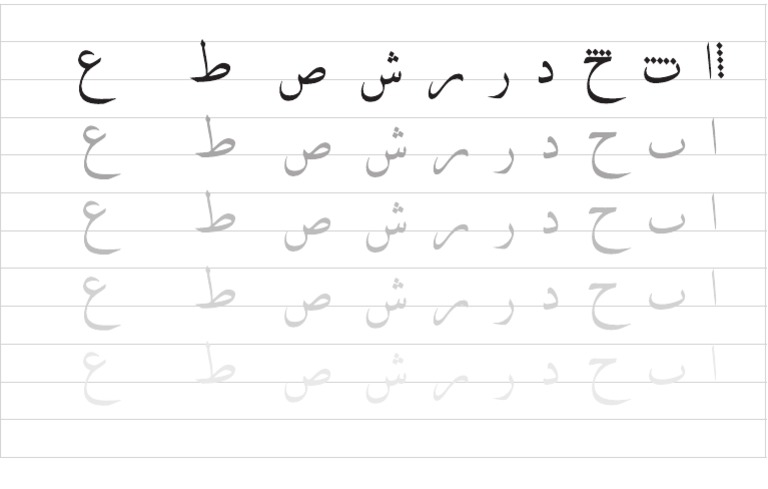 ا ٮ ح د ر ر ش ص ط ع
ا ٮ ح د ر ر ش ص ط ع
ا ٮ ح د ر ر ش ص ط ع
ا ٮ ح د ر ر ش ص ط ع
ا ٮ ح د ر ر ش ص ط ع